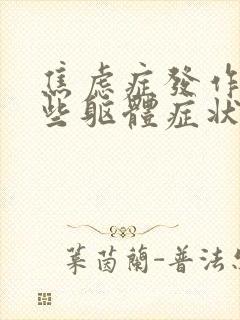 焦虑症發作
些軀體症狀
葉茵蘭-普法